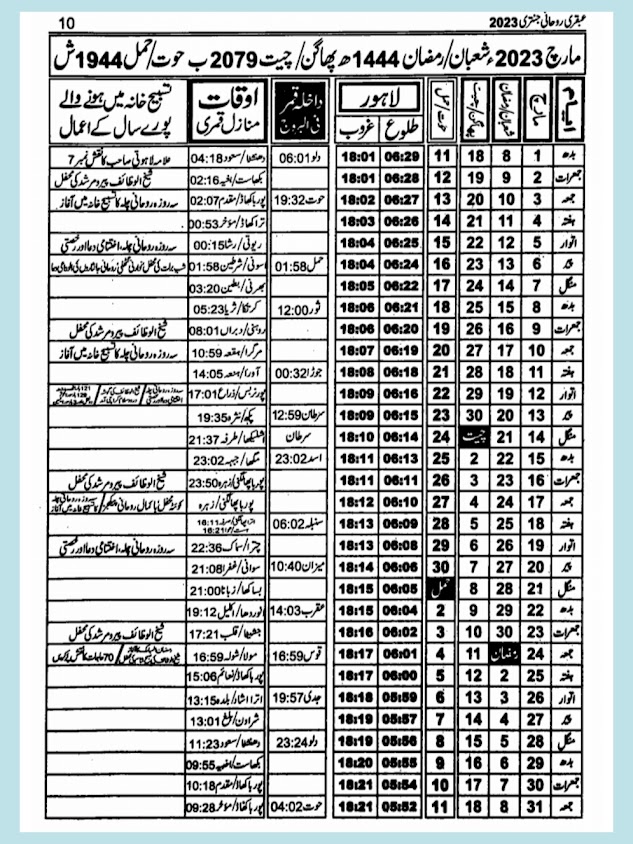 عبقری روحانی جنتری 2023
10
مارچ 2023ء شعبان/رمضان 1444ھ پھاگن/چیت 2079 ب حوت/حمل 1944 ش
ایام مارچ شعبان/رمضان پھاگن/چیت حوت/حمل لاہور طلوع غروب داخلہ قمر فی البروج اوقات منازل قمری تسبیح خانہ میں ہونے والے پورے سال کے اعمال
بدھ 1 8 18 11 06:29 18:01 دلو 06:01 دھنشٹا/سعود 04:18 علامہ لاہوتی صاحب کا نقش نمبر 7
جمعرات 2 9 19 12 06:28 18:01 02:16 شیخ الوظائف پیر و مرشد کی محفل
جمعہ 3 10 20 13 06:27 18:02 حوت 19:32 پوربا بھادر/مقدم 02:07 سہ روزہ روحانی چلہ کا تسبیح خانہ میں آغاز
ہفتہ 4 11 21 14 06:26 18:03 00:53
اتوار 5 12 22 15 06:25 18:04 ریوتی/رشا 00:15 سہ روزہ روحانی چلہ، اختتامی دعا اور رخصتی
پیر 6 13 23 16 06:24 18:04 حمل 01:58 اسونی/شرطین 01:58
منگل 7 14 24 17 06:22 18:05 بھرنی/بطین 03:20
بدھ 8 15 25 18 06:21 18:06 ثور 12:00 کرتکا/ثریا 05:23
جمعرات 9 16 26 19 06:20 18:06 روہنی/دبراں 08:01 شیخ الوظائف پیر و مرشد کی محفل
جمعہ 10 17 27 20 06:19 18:07 مرگرا/ہقعہ 10:59 سہ روزہ روحانی چلہ کا تسبیح خانہ میں آغاز
ہفتہ 11 18 28 21 06:18 18:08 جوزا 00:32 آردرا/ہنعہ 14:05
اتوار 12 19 29 22 06:16 18:09 پونربس/ذراع 17:01
پیر 13 20 30 23 06:15 18:09 سرطان 12:59 پکھ/نثرہ 19:35
منگل 14 21 چیت 24 06:14 18:10 سرطان اشلیکھا/طرفہ 21:37
بدھ 15 22 2 25 06:13 18:11 اسد 23:02 مگھا/جبہہ 23:02
جمعرات 16 23 3 26 06:11 18:11 پوربا پھالگنی/زہرہ 23:50 شیخ الوظائف پیر و مرشد کی محفل
جمعہ 17 24 4 27 06:10 18:12 پوربا پھالگنی/زہرہ
ہفتہ 18 25 5 28 06:09 18:13 سنبلہ 06:02
اتوار 19 26 6 29 06:08 18:13 چترا/سماک 22:36 سہ روزہ روحانی چلہ، اختتامی دعا اور رخصتی
پیر 20 27 7 30 06:06 18:14 میزان 10:40 سواتی/غفرا 21:08
منگل 21 28 8 حمل 06:05 18:15 بساکھا/زبانا 21:00
بدھ 22 29 9 2 06:04 18:15 عقرب 14:03 انورادھا/اکلیل 19:12
جمعرات 23 30 10 3 06:02 18:16 جشیٹا/قلب 17:21 شیخ الوظائف پیر و مرشد کی محفل
جمعہ 24 رمضان 11 4 06:01 18:17 قوس 16:59 مولا/شولہ 16:59
ہفتہ 25 2 12 5 06:00 18:17 پوربا کھاڈ/نعائم 15:06
اتوار 26 3 13 6 05:59 18:18 جدی 19:57 اترا اشاڈ/بلدہ 13:15
پیر 27 4 14 7 05:57 18:19 شراون/بلع 13:01
منگل 28 5 15 8 05:56 18:19 دلو 23:24 دھنشٹا/سعود 11:23
بدھ 29 6 16 9 05:55 18:20 09:55
جمعرات 30 7 17 10 05:54 18:21 پوربا بھادر/مقدم 10:18
جمعہ 31 8 18 11 05:52 18:21 حوت 04:02 09:28